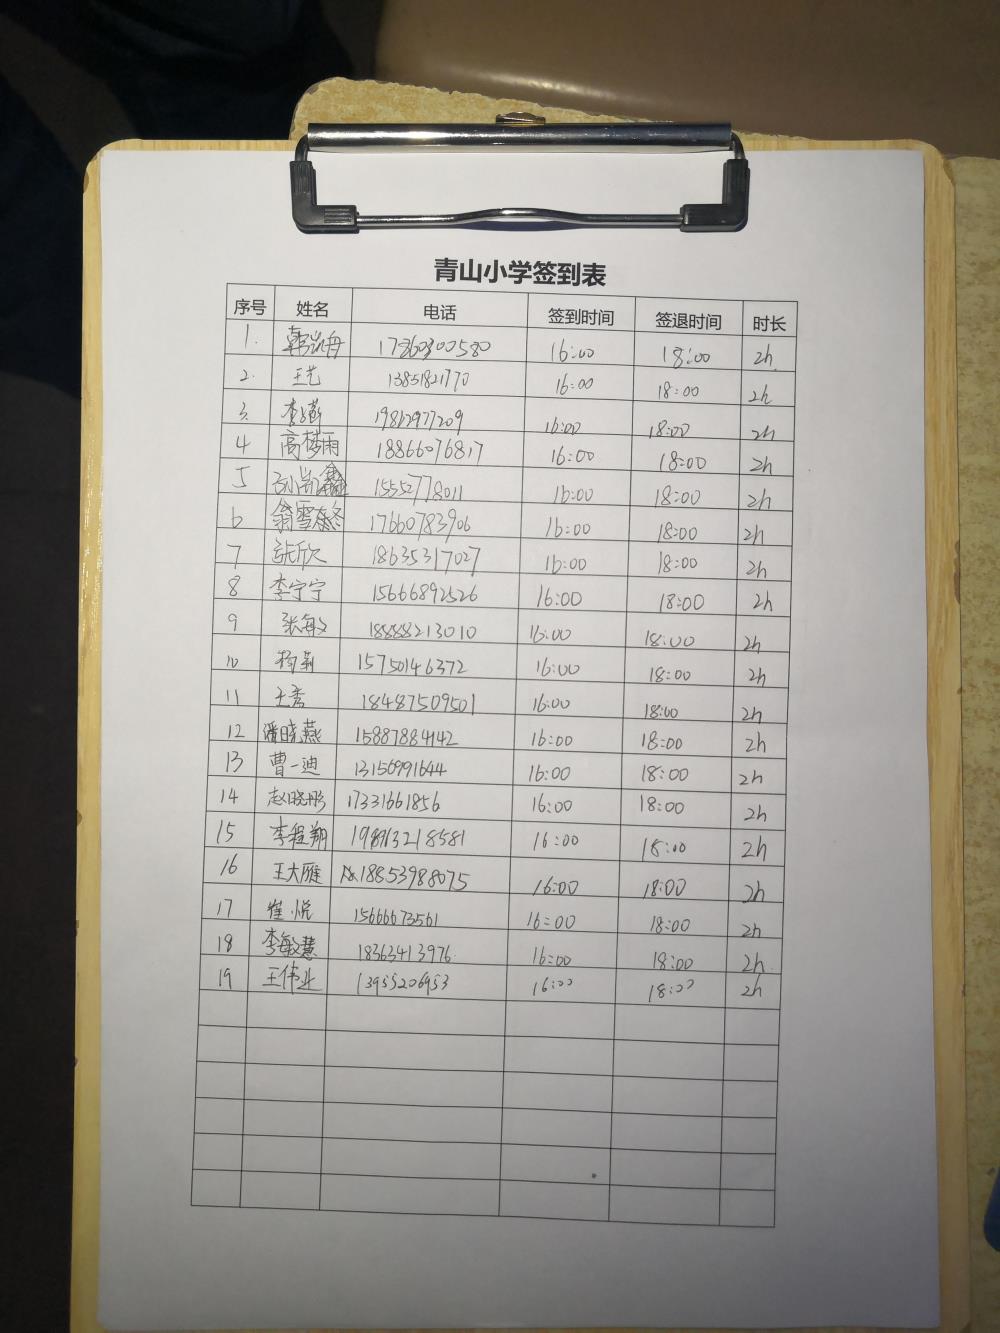 青山小学签到表
序号 姓名 电话 签到时间 签退时间 时长
1. 韩凯舟 16:00 18:00 2h.
2. 王艺 13851821770 16:00 18:00 2h
3. 19862977209 16:00 18:00 2h
4 高梦雨 18866076817 16:00 18:00 2h
5 孙凯鑫 15552778011 16:00 18:00 2h
6 翁雪 17660783906 16:00 18:00 2h
7 张欣 18635317027 16:00 18:00 2h
8 李宁宁 15666892526 16:00 18:00 2h
9 张敏 18888213010 16:00 18:00 2h
10 杨莉 15750146372 16:00 18:00 2h
11 王秀 18487509501 16:00 18:00 2h
12 潘晓燕 15887884142 16:00 18:00 2h
13 曹一迪 13156991644 16:00 18:00 2h
14 赵晓彤 17331661856 16:00 18:00 2h
15 李程翔 16:00 18:00 2h
16 王大雁 18853988075 16:00 18:00 2h
17 崔悦 15666673561 16:00 18:00 2h
18 李敏慧 18363413976 16:00 18:00 2h.
19 王伟业 13955206953 16:00 18:00 2h